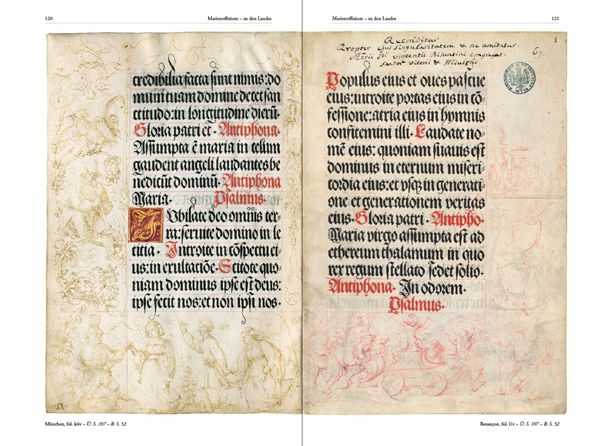 120 Marienoffizium – zu den Laudes
credibilia facta sunt nimis: do
mum tuam domine decet san
titudo: in longitudine dierū.
Gloria patri et · Antiphona·
Assumpta ē maria in celum
gaudent angeli laudantes be
nedicūt dominū. Antiphona
Maria. Psalmus.
IUbilate deo omnis ter
ra: seruite domino in le
titia. Introite in cōspectu ei
us: in exultatiōe. Scitote quo
niam dominus ipse est deus:
ipse fecit nos: et non ipsi nos.
München, fol. k6v – Ü: S. 107 – B: S. 52
Marienoffizium – zu den Laudes 121
Reconditur
Propter ejus singularitatem & ne amittatur
Sti vincentii Bisuntini congregat.
vitoni & Hidulphi
69.
1
Populus eius et oues pascue
eius: introite portas eius in cō
fessione: atria eius in hymnis
confitemini illi. Laudate no-
mē eius: quoniam suauis est
dominus in eternum miseri
cordia eius: et vsqȝ in generati
one et generationem veritas
eius. Gloria patri. Antipho.
Maria virgo assumpta est ad
ethereum thalamum in quo
rex regum stellato sedet solio.
Antiphona. In odorem.
Psalmus.
Besançon, fol. l1r – Ü: S. 107 – B: S. 52